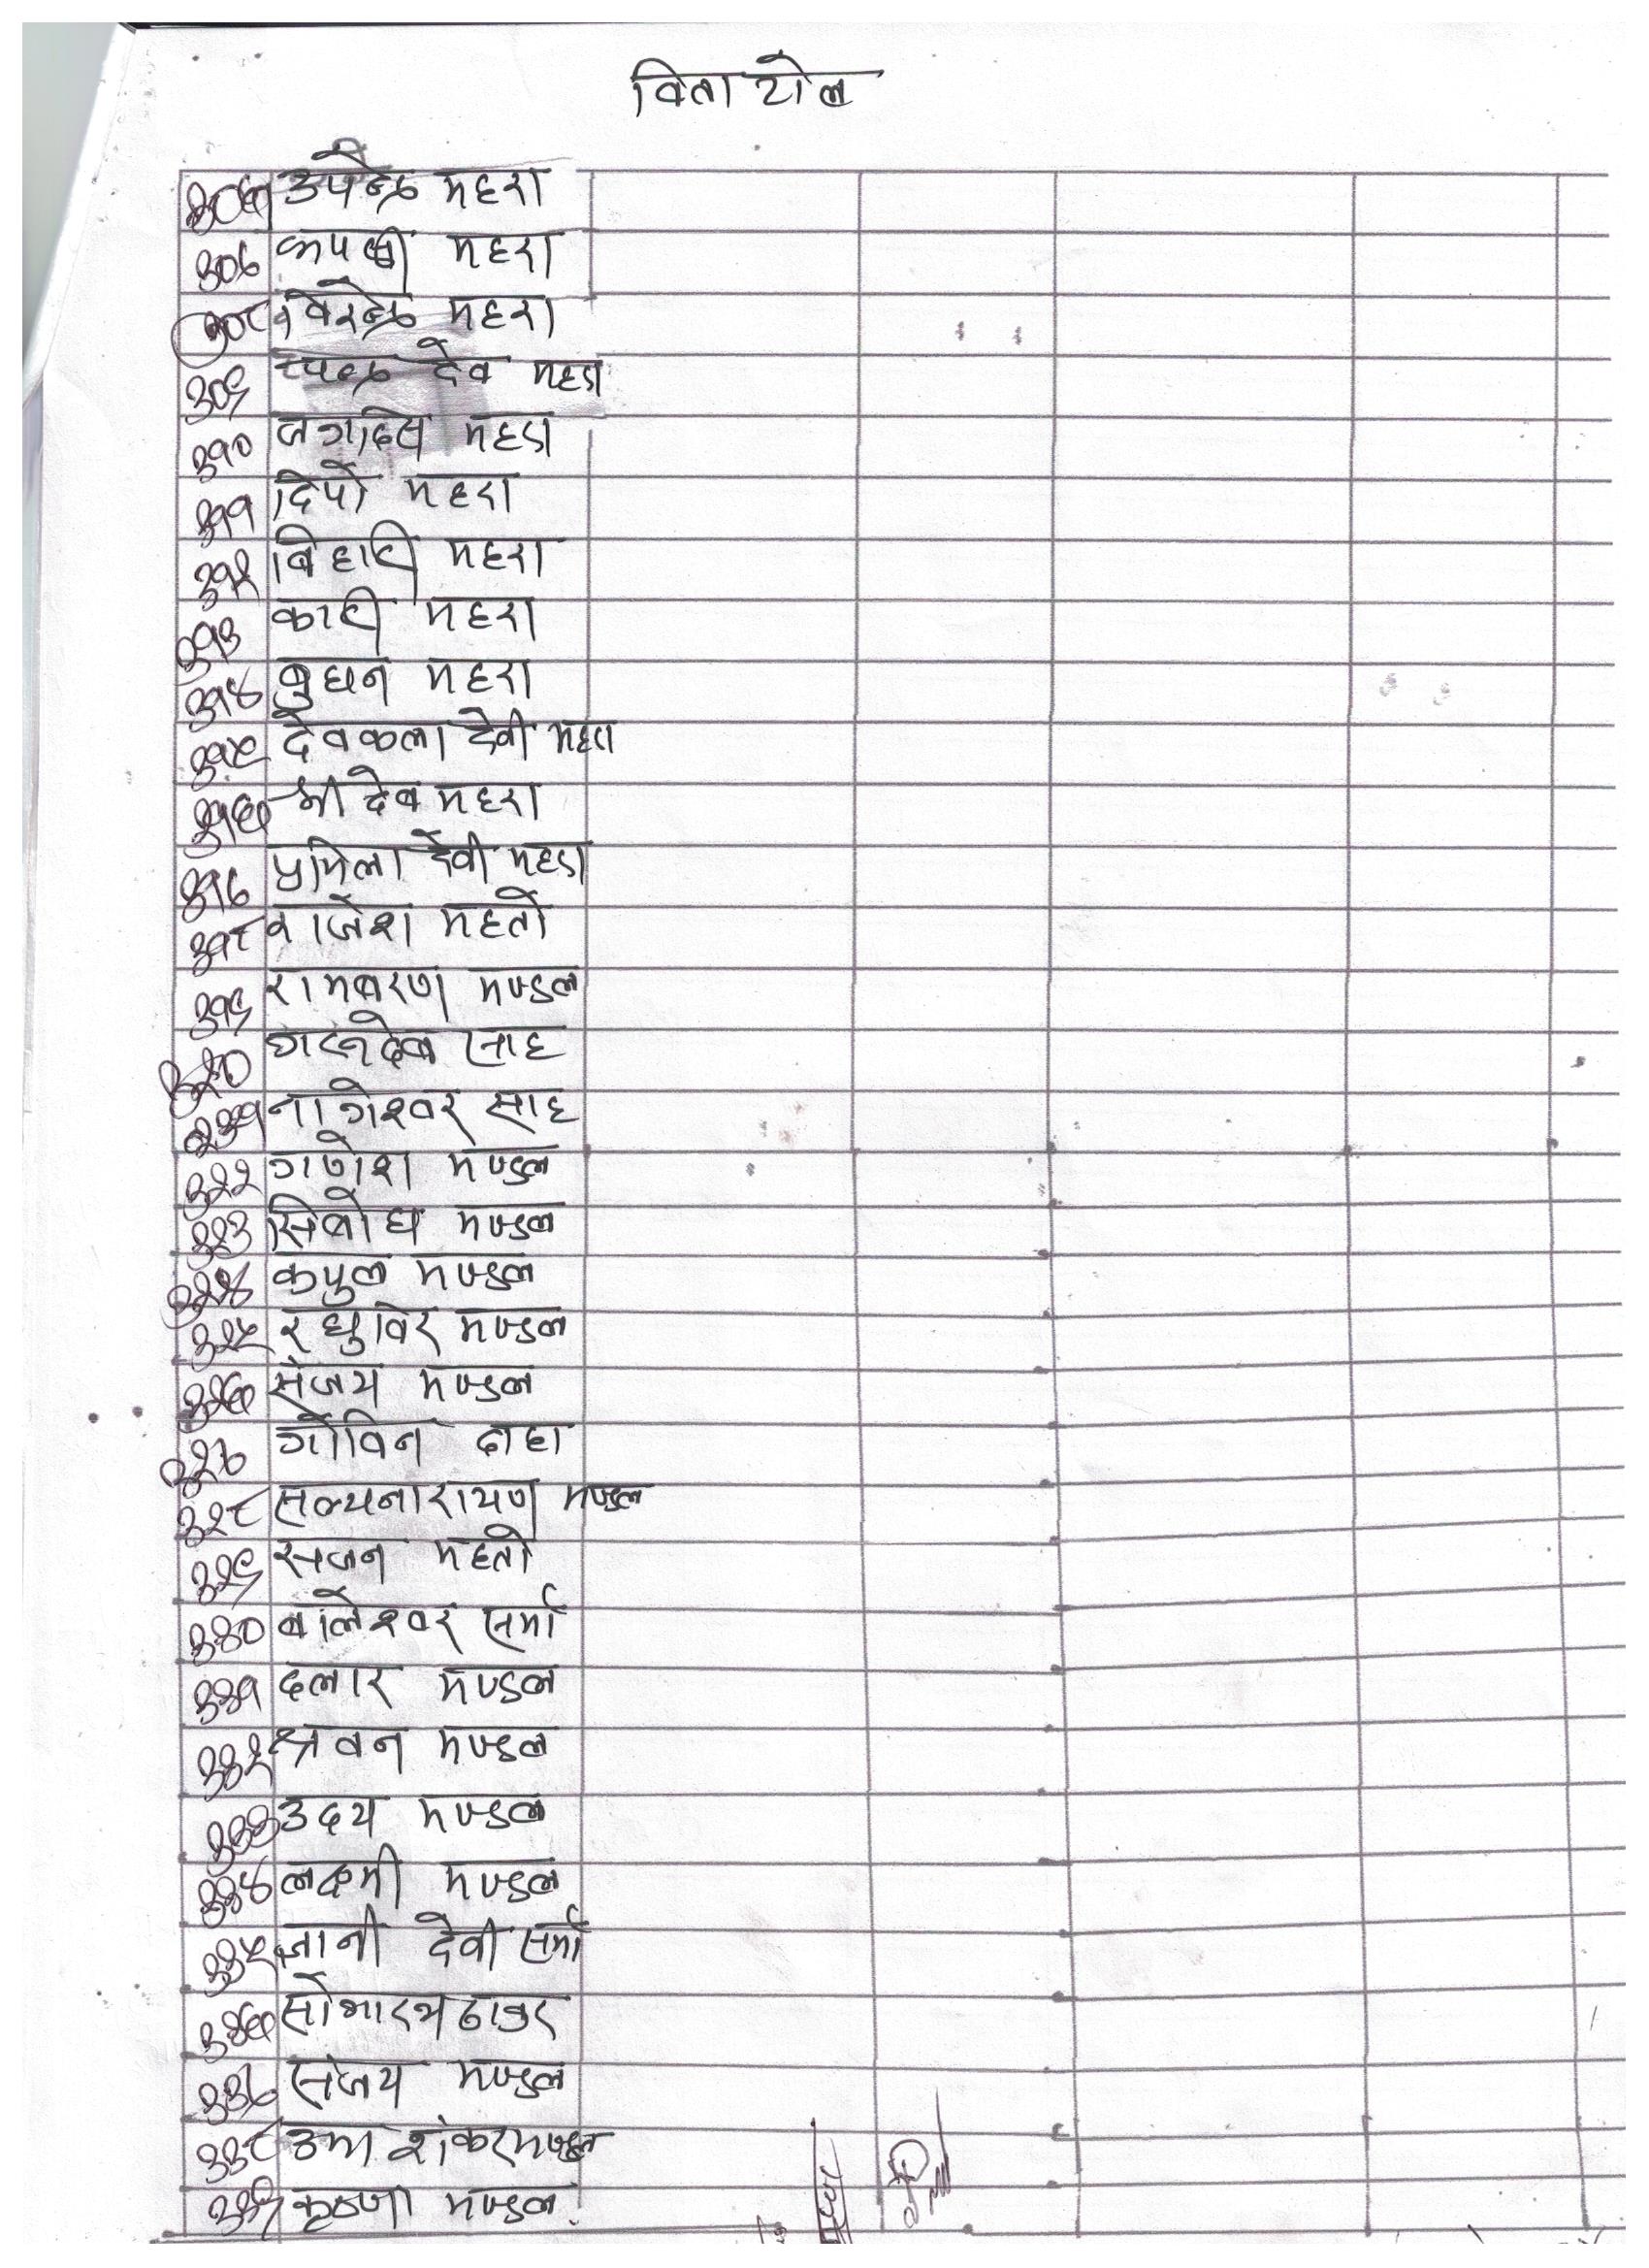 विता टोल
३०६ उपेन्द्र महरा
३०७ कपली महरा
३०८ विरेन्द्र महरा
३०९ चन्द्र देव महरा
३१० जगदिस महरा
३११ दिपो महरा
३१२ बिहारी महरा
३१३ कारी महरा
३१४ बुधन महरा
३१५ देवकला देवी महरा
३१६ श्री देव महरा
३१७ प्रमिला देवी महरा
३१८ राजेश महतो
३१९ रामबरण मण्डल
३२० साह
३२१ नागेश्वर साह
३२२ गणेश मण्डल
३२३ सिबोध मण्डल
३२४ कपुल मण्डल
३२५ रघुविर मण्डल
३२६ संजय मण्डल
३२७ गोविन दाहा
३२८ सत्यनारायण मण्डल
३२९ सजन महतो
३३० बालेश्वर सर्मा
३३१ दलार मण्डल
३३२ श्रवन मण्डल
३३३ उदय मण्डल
३३४ लक्ष्मी मण्डल
३३५ ज्ञानी देवी सर्मा
३३६ सोभारथ ठाकुर
३३७ संजय मण्डल
३३८ उमा शंकर मण्डल
३३९ कृष्णा मण्डल